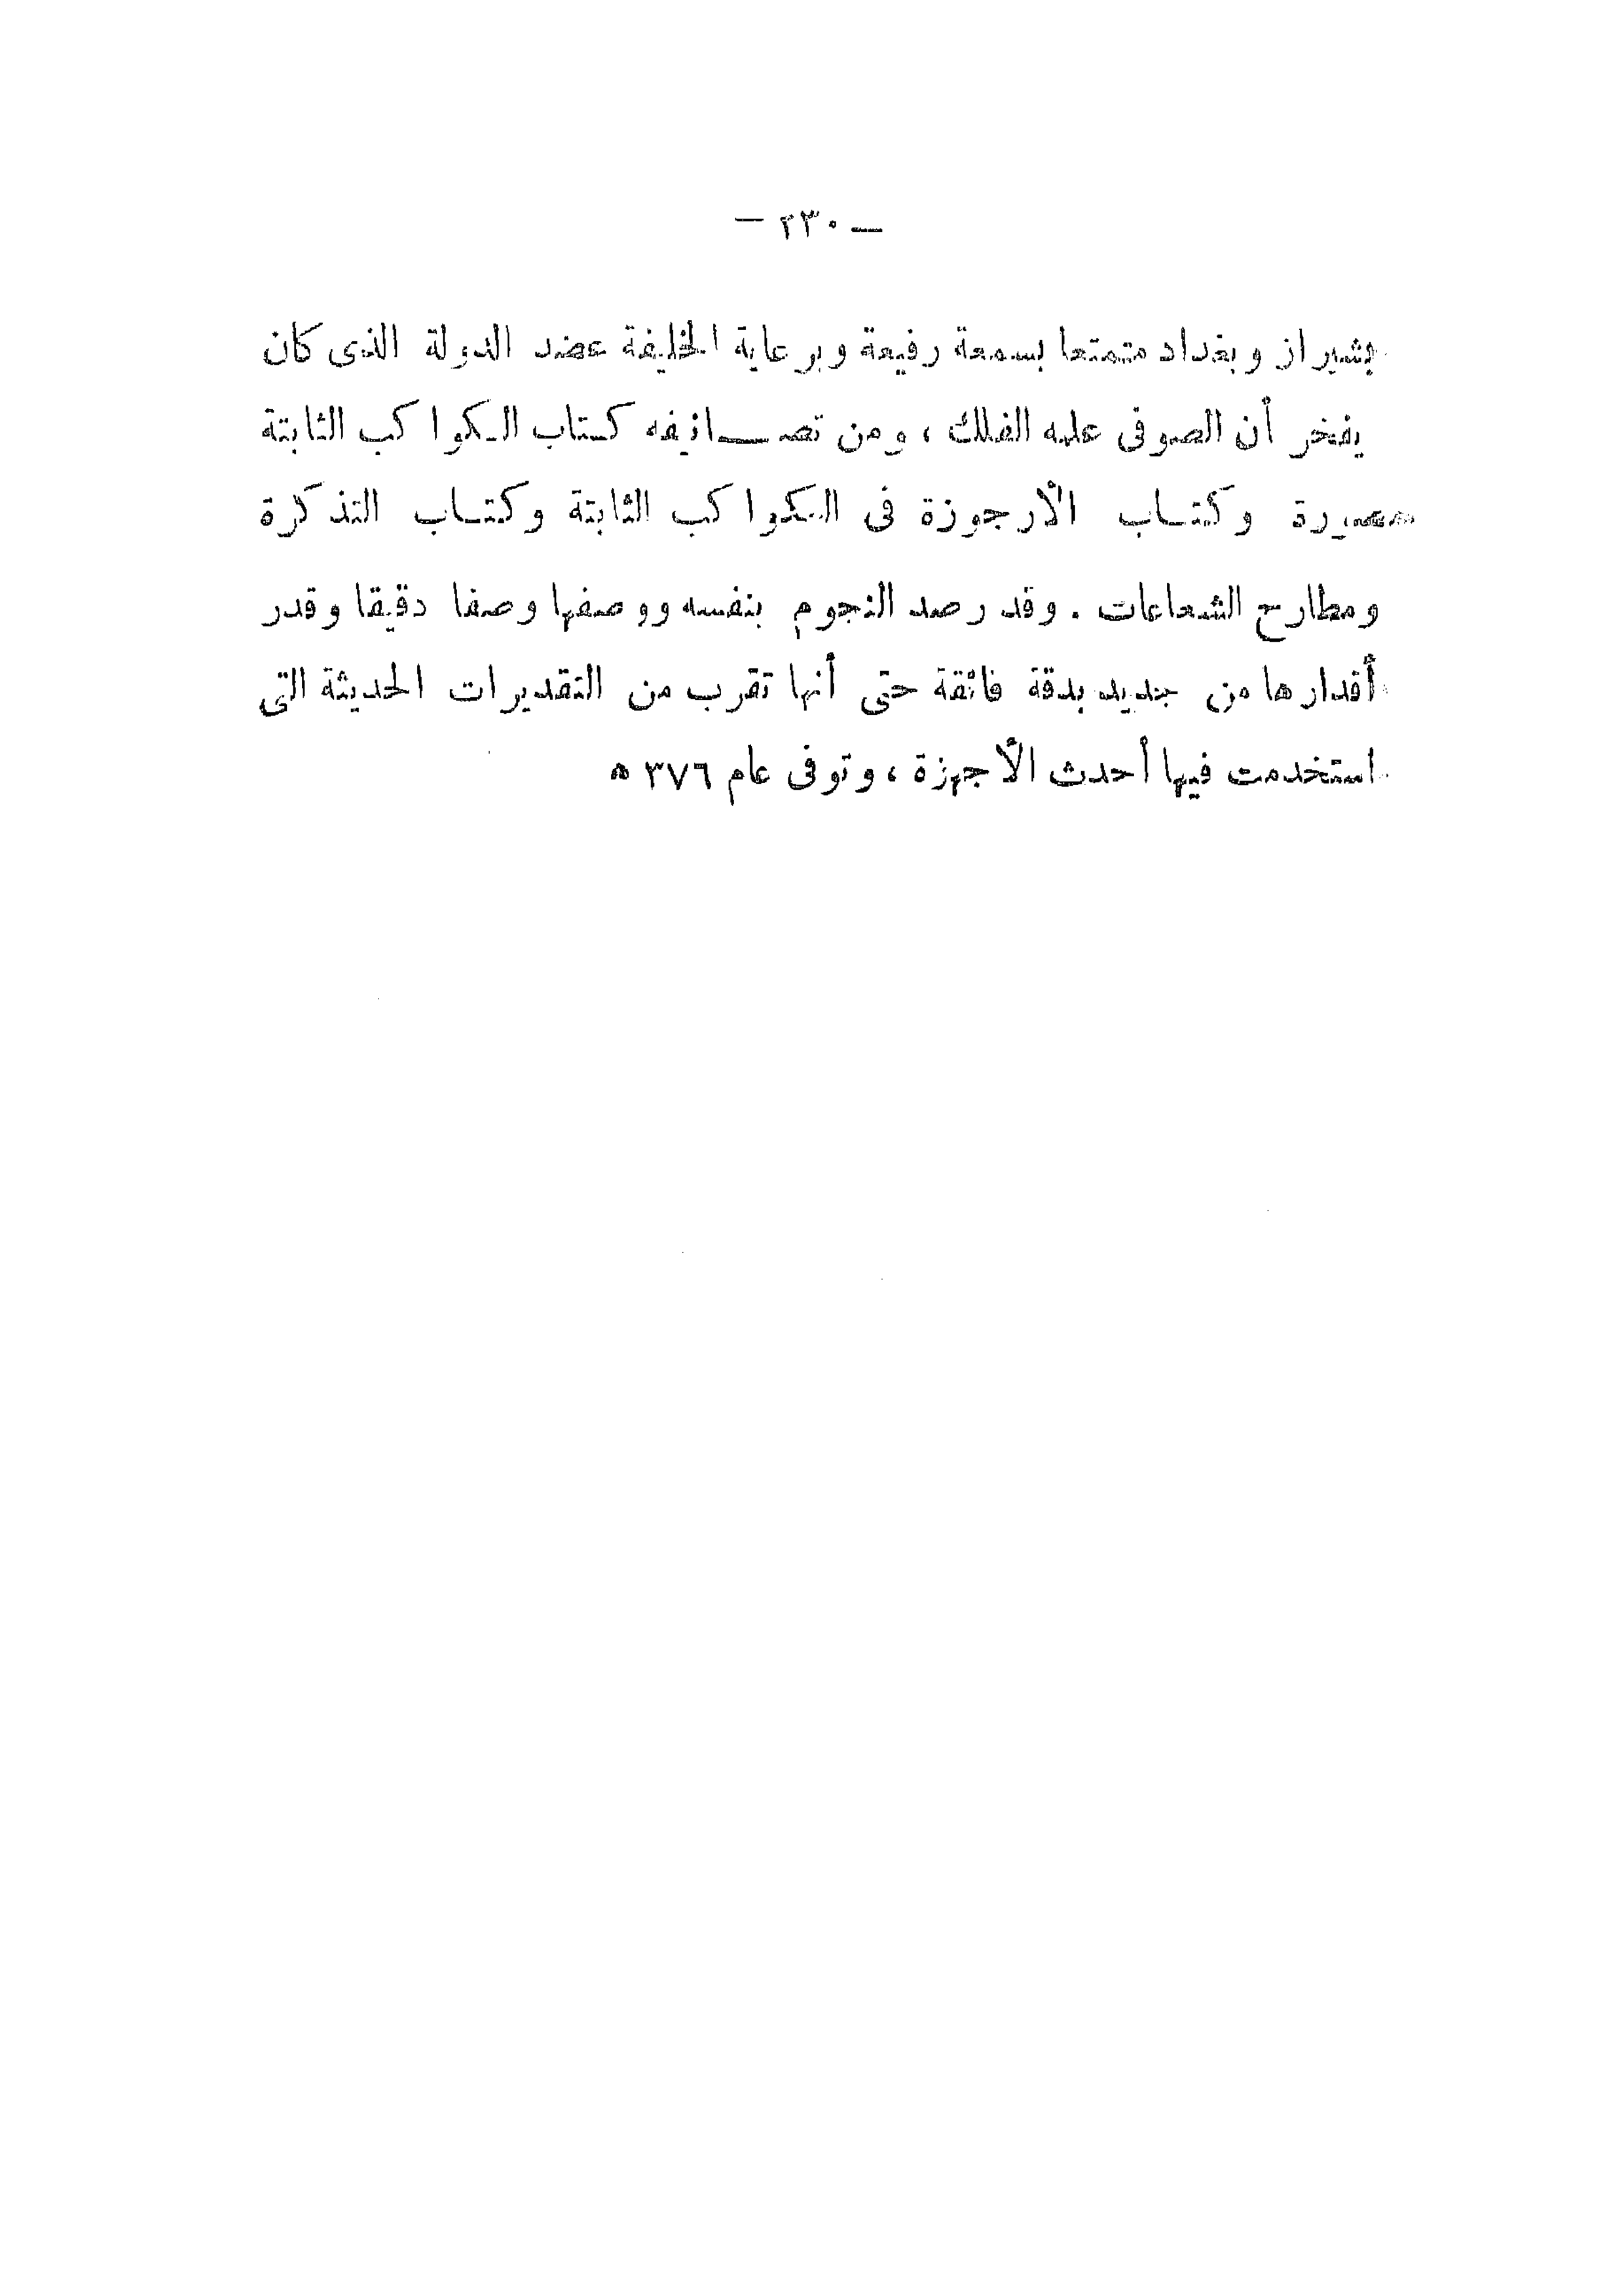 — ٢٣٠ —
بشيراز وبغداد متمتعا بسمعة رفيعة وبرعاية الخليفة عضد الدولة الذى كان
يفخر أن الصوفى علمه الفلك ، ومن تصانيفه كتاب الكواكب الثابتة
مصورة وكتاب الأرجوزة فى الكواكب الثابتة وكتاب التذكرة
ومطارح الشعاعات . وقد رصد النجوم بنفسه ووصفها وصفا دقيقا وقدر
أقدارها من جديد بدقة فائقة حتى أنها تقرب من التقديرات الحديثة التى
استخدمت فيها أحدث الأجهزة ، وتوفى عام ٣٧٦ ه